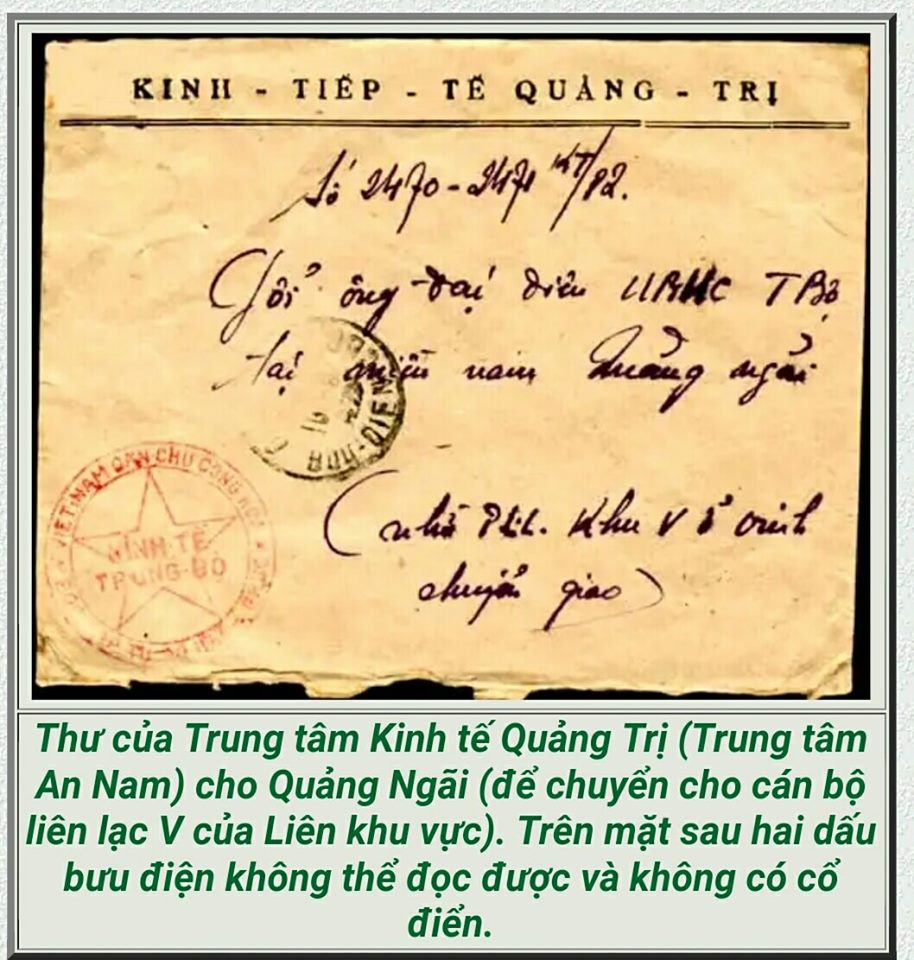 KINH - TIẾP - TẾ QUẢNG - TRỊ
Số 2470-2471 KT/P2.
Gởi ông Đại diện UBHC TBộ
tại miền nam Quảng ngãi
BƯU-ĐIỆN
VIET-NAM DAN CHU CONG HOA
KINH TẾ
TRUNG-BỘ
(nhờ Khu V ở
chuyển giao)
Thư của Trung tâm Kinh tế Quảng Trị (Trung tâm
An Nam) cho Quảng Ngãi (để chuyển cho cán bộ
liên lạc V của Liên khu vực). Trên mặt sau hai dấu
bưu điện không thể đọc được và không có cổ
điển.